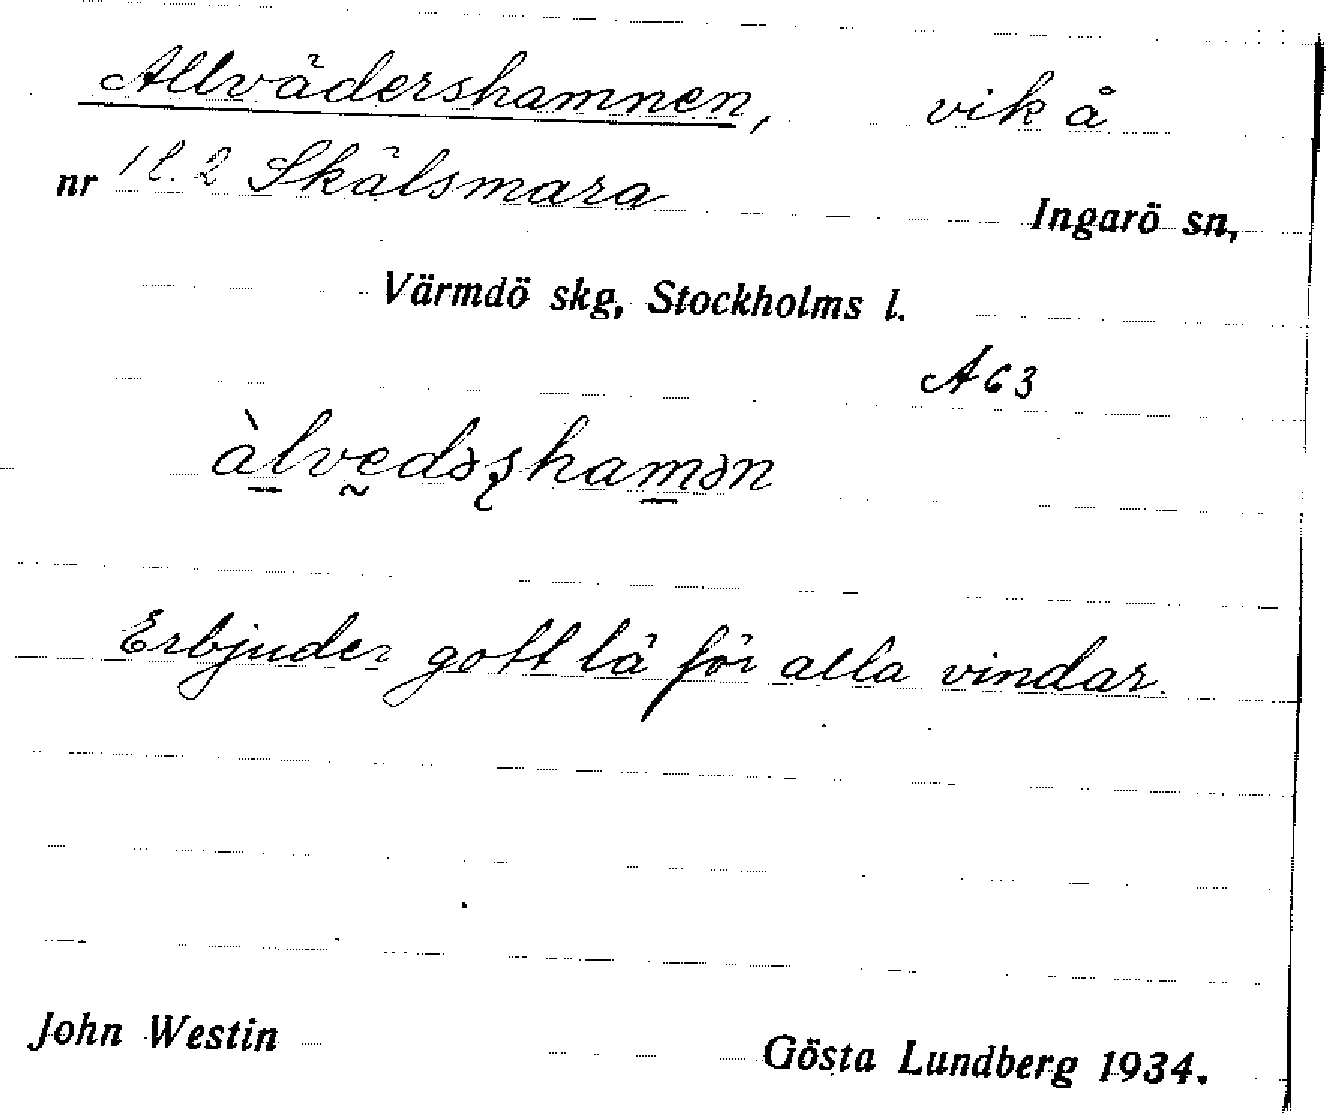 Allvädershamnen, vik å
nr 1 l. 2 Skälsmara
Ingarö sn,
Värmdö skg, Stockholms l.
A63
àlvedəʂhamən
Erbjuder gott lä för alla vindar.
John Westin
Gösta Lundberg 1934.